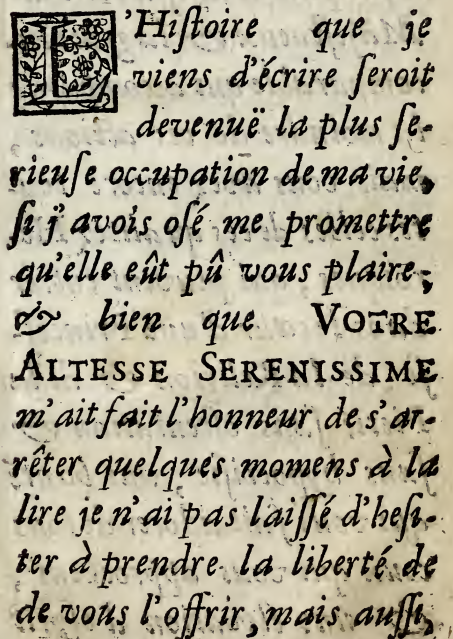 L'Histoire que je
viens d'écrire seroit
devenuë la plus se-
rieuse occupation de ma vie,
si j'avois osé me promettre
qu'elle eût pû vous plaire;
& bien que VOTRE
ALTESSE SERENISSIME
m'ait fait l'honneur de s'ar-
rêter quelques momens à la
lire je n'ai pas laissé d'hesi-
ter à prendre la liberté de
de vous l'offrir, mais aussi,